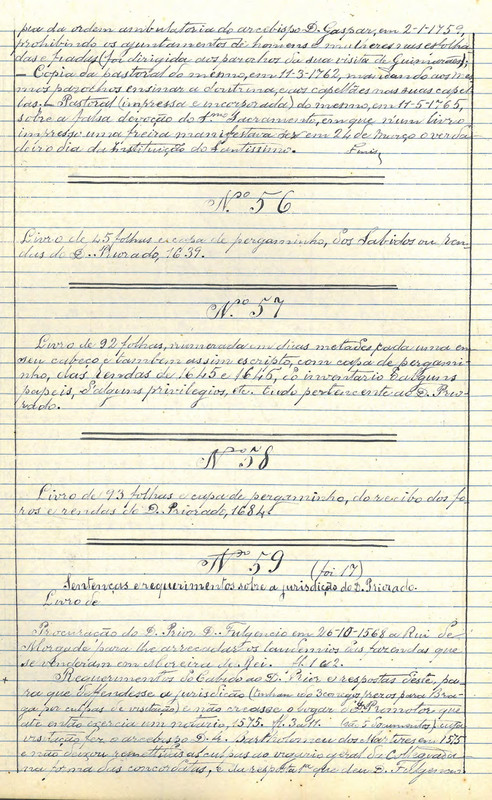 pia da ordem ambulatoria do arcebispo D. Gaspar, em 2-1-1759,
prohibindo os ajuntamentos de homens e mulheres nas esfolha-
das e fiadas (foi dirigida aos parochos da sua visita de Guimarães);
— Copia da pastoral do mesmo, em 11-3-1762, mandando aos mes-
mos parochos ensinar a doutrina, e aos capellães nas suas capel-
las. — Pastoral (impressa e incorporada) do mesmo, em 11-5-1765,
sobre a falsa devoção do S.mo Sacramento, em que n'um livro
impresso uma freira manifestava ser em 24 de Março o verda-
deiro dia da Instituição do Santissimo.
N.º 56
Livro de 45 folhas e capa de pergaminho, dos Sabidos ou ren-
das do D. Priorado, 1639.
N.º 57
Livro de 92 folhas, numerada em duas metades, cada uma em
seu cabeço e tambem assim escripto, com capa de pergami-
nho, das rendas de 1645 e 1645, e o inventario d'alguns
papeis, d'alguns privilegios, etc. tudo pertencente ao D. Prio-
rado.
N.º 58
Livro de 93 folhas e capa de pergaminho, do recibo dos fo-
ros e rendas do D. Priorado, 1684.
N.º 59 (foi 17)
Sentenças e requerimentos sobre a jurisdição do D. Priorado.
Livro de
Procuração do D. Prior D. Fulgencio em 26-10-1568 a Rui de
Morgade para lhe arrecadar os laudemios das fazendas que
se venderam em Moreira de Rei. fl. 1 a 2.
+ Requerimentos do Cabido ao D. Prior e respostas d'este, pa-
ra que defendesse a jurisdição (tinham ido 3 conegos presos para Bra-
ga, por culpas de visitação) e não creasse o logar de Promotor que
até então exercia um notario, 1575. fl. 3 a 11. (São 5 documentos), cuja
visitação fez o arcebispo D. fr. Bartholomeu dos Martires em 1575
e não deixou remetter as culpas ao vigario geral da Collegiada
na forma das concordatas, e da resposta que deu D. Fulgencio